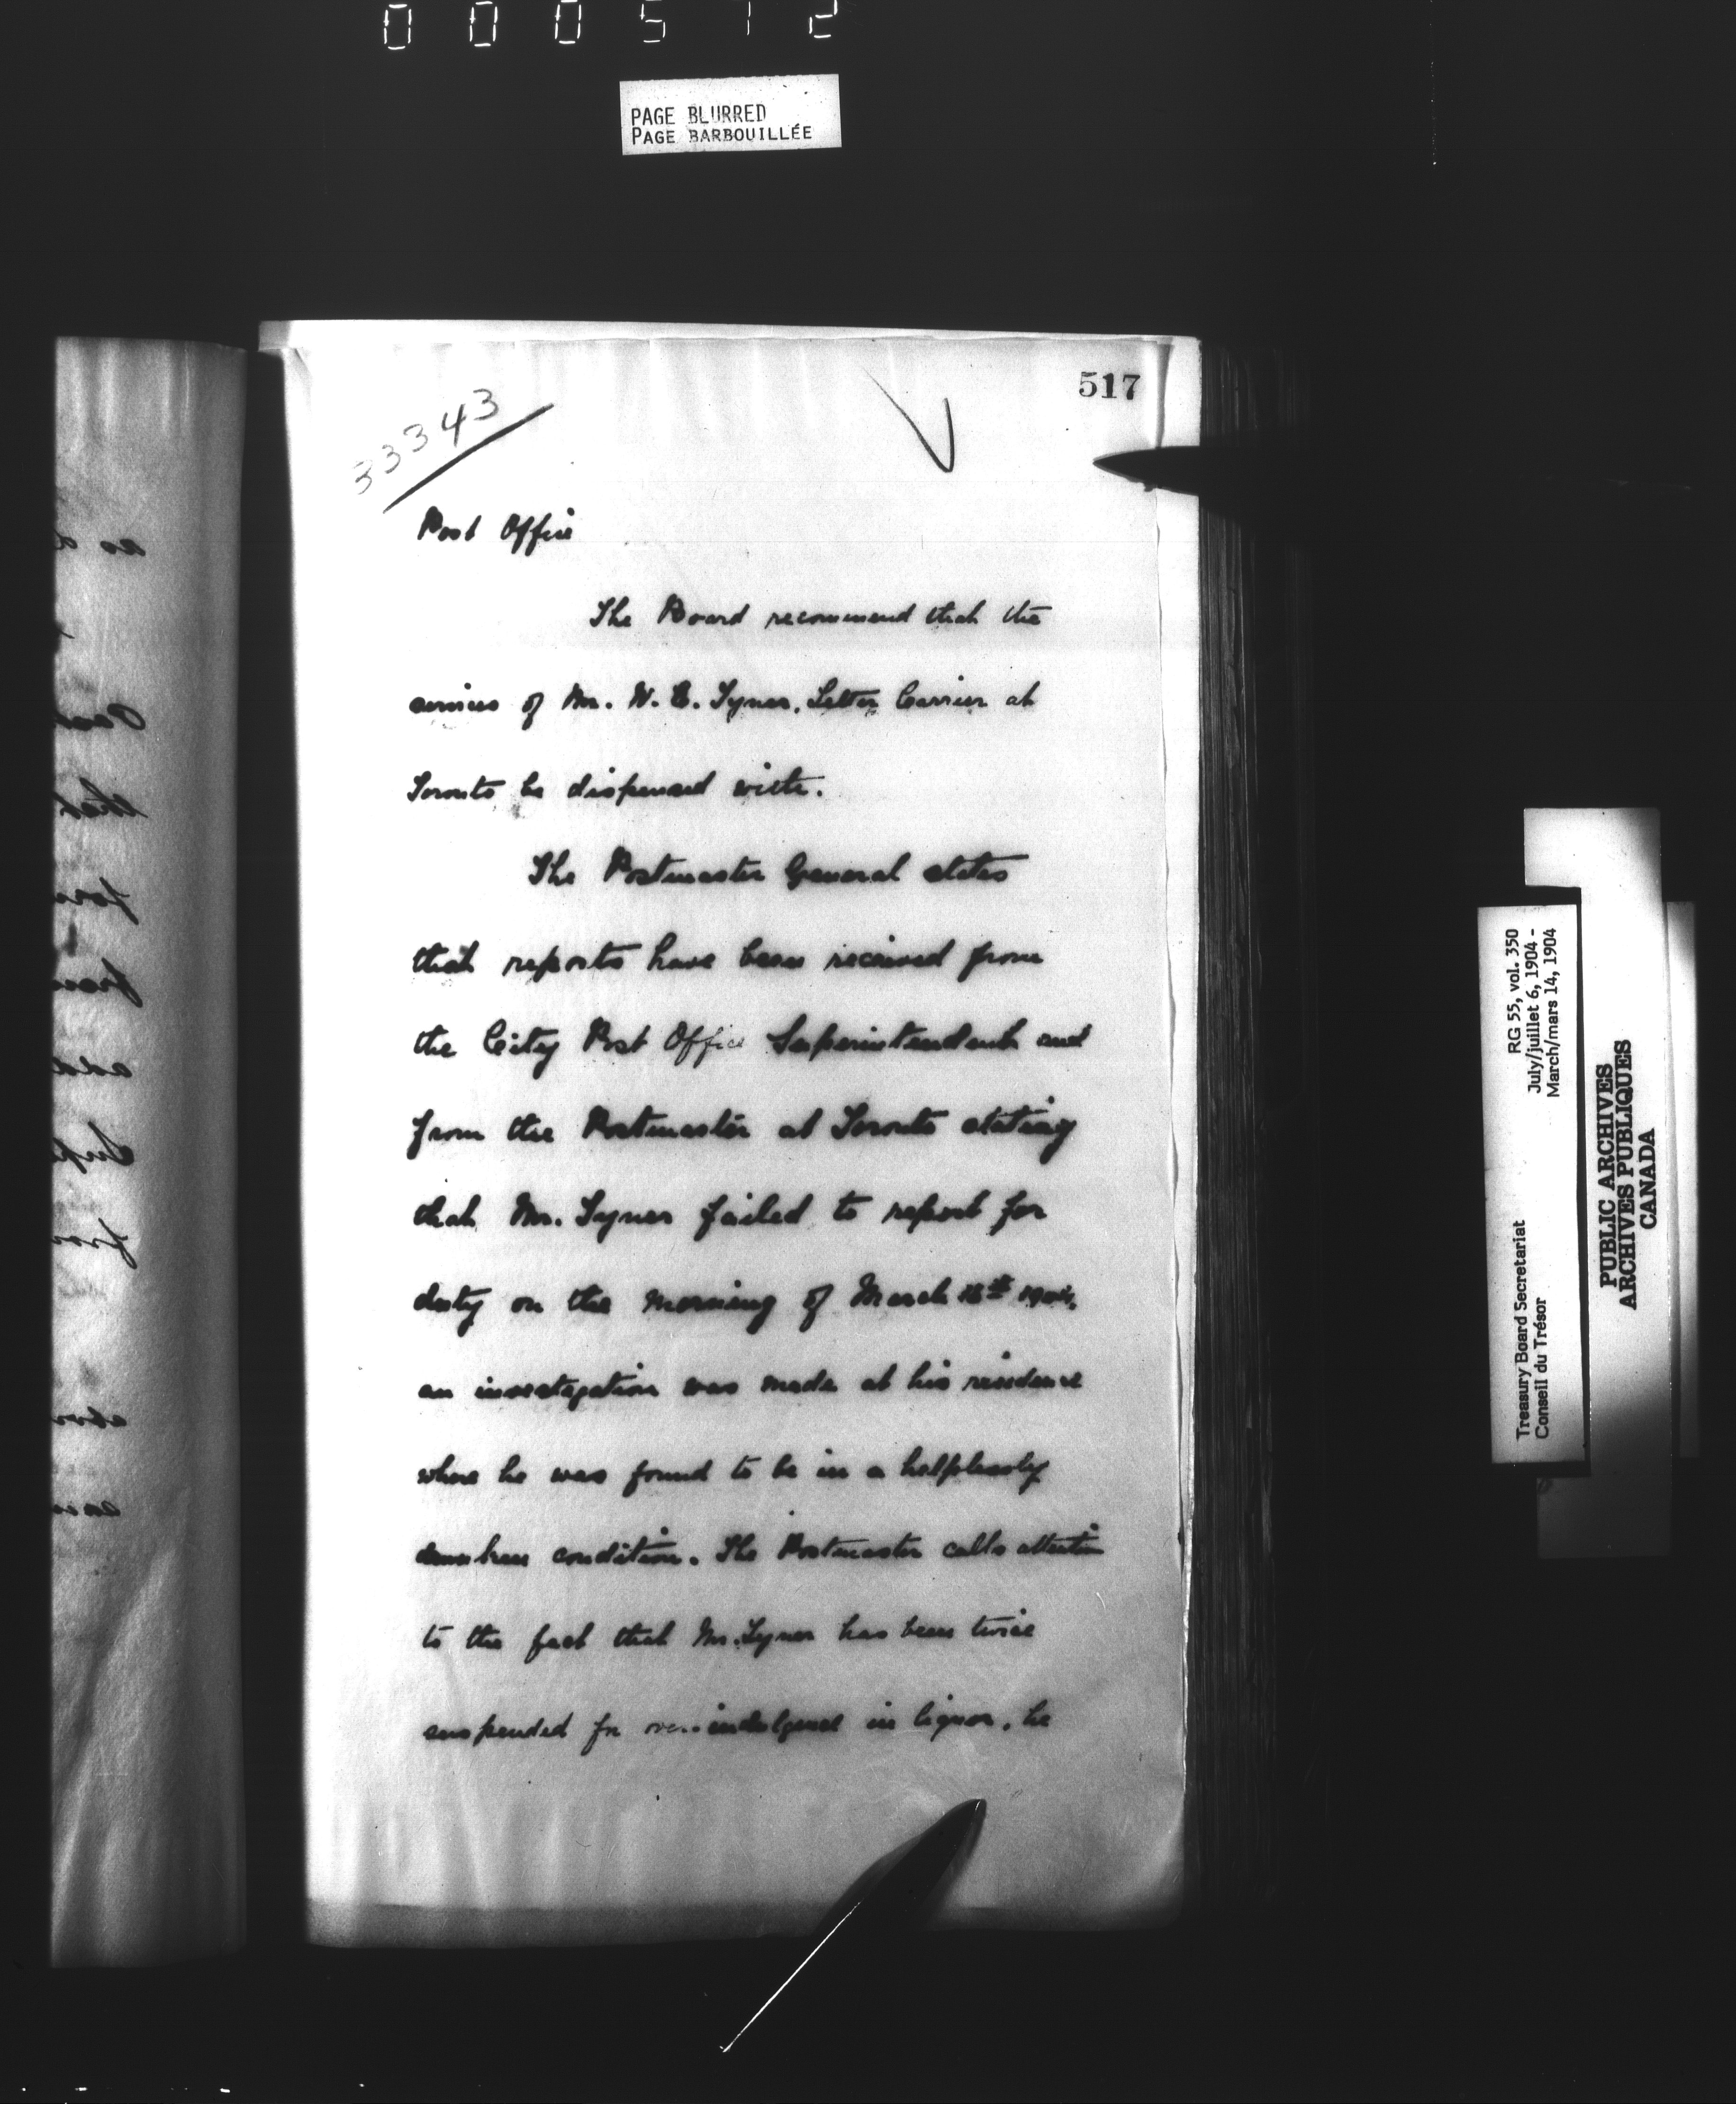 000512
PAGE BLURRED
PAGE BARBOUILLÉE
517
33343
Post Office
The Board recommend that the
services of Mr. W. E. Tyner, Letter Carrier at
Toronto be dispensed with.
The Postmaster General states
that reports have been received from
the City Post Office Superintendent and
from the Postmaster at Toronto stating
that Mr. Tyner failed to report for
duty on the morning of March 1904,
an investigation was made at his residence
where he was found to be in a helplessly
drunken condition. The Postmaster calls attention
to the fact that Mr. Tyner has been twice
suspended for over-indulgence in liquor, he
RG 55, vol. 350
July/juillet 6, 1904 -
March/mars 14, 1904
Treasury Board Secretariat
Conseil du Trésor
PUBLIC ARCHIVES
ARCHIVES PUBLIQUES
CANADA